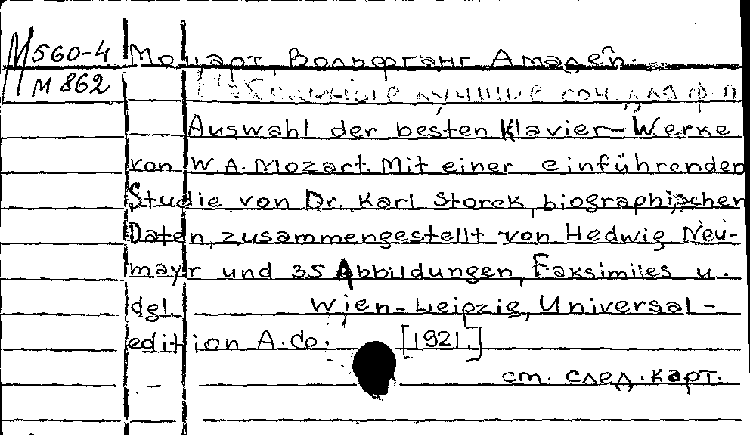 М560-4 Моцарт, Вольфганг Амадей.
М862 [Избранные лучшие соч. для ф-п
Auswahl der besten Klavier-Werke
von W.A. Mozart. Mit einer einführenden
Studie von Dr. Karl Storck, biographischen
Daten, zusammengestellt von Hedwig Neu-
mayr und 35 Abbildungen, Faksimiles u.
dgl. Wien-Leipzig, Universal-
edition A.Co. [1921.]
см. след. карт.